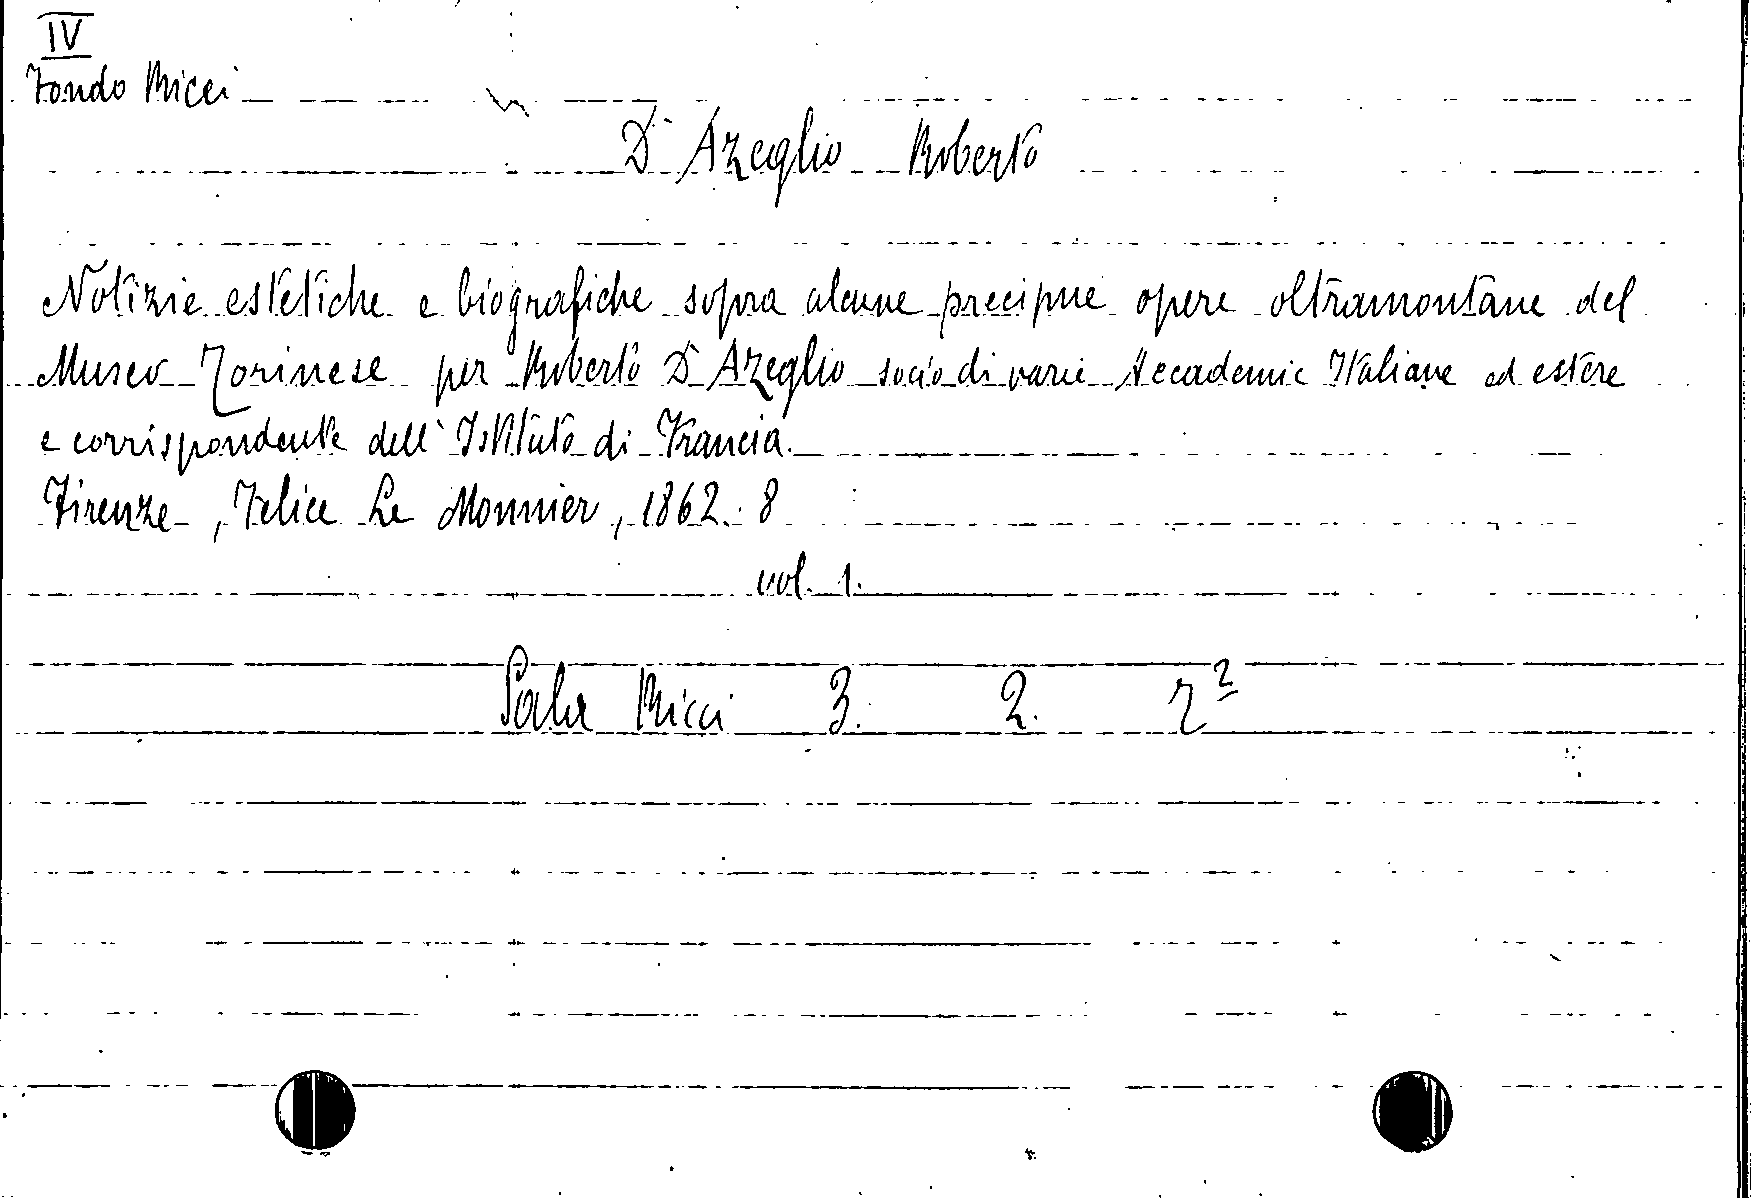 IV
Fondo Ricci
D'Azeglio Roberto
Notizie estetiche e biografiche sopra alcune precipue opere oltramontane del
Museo Torinese per Roberto D'Azeglio socio di varie Accademie Italiane ed estere
e corrispondente dell'Istituto di Francia.
Firenze, Felice Le Monnier, 1862. 8
vol. 1.
Sala Ricci 3. 2. 7²